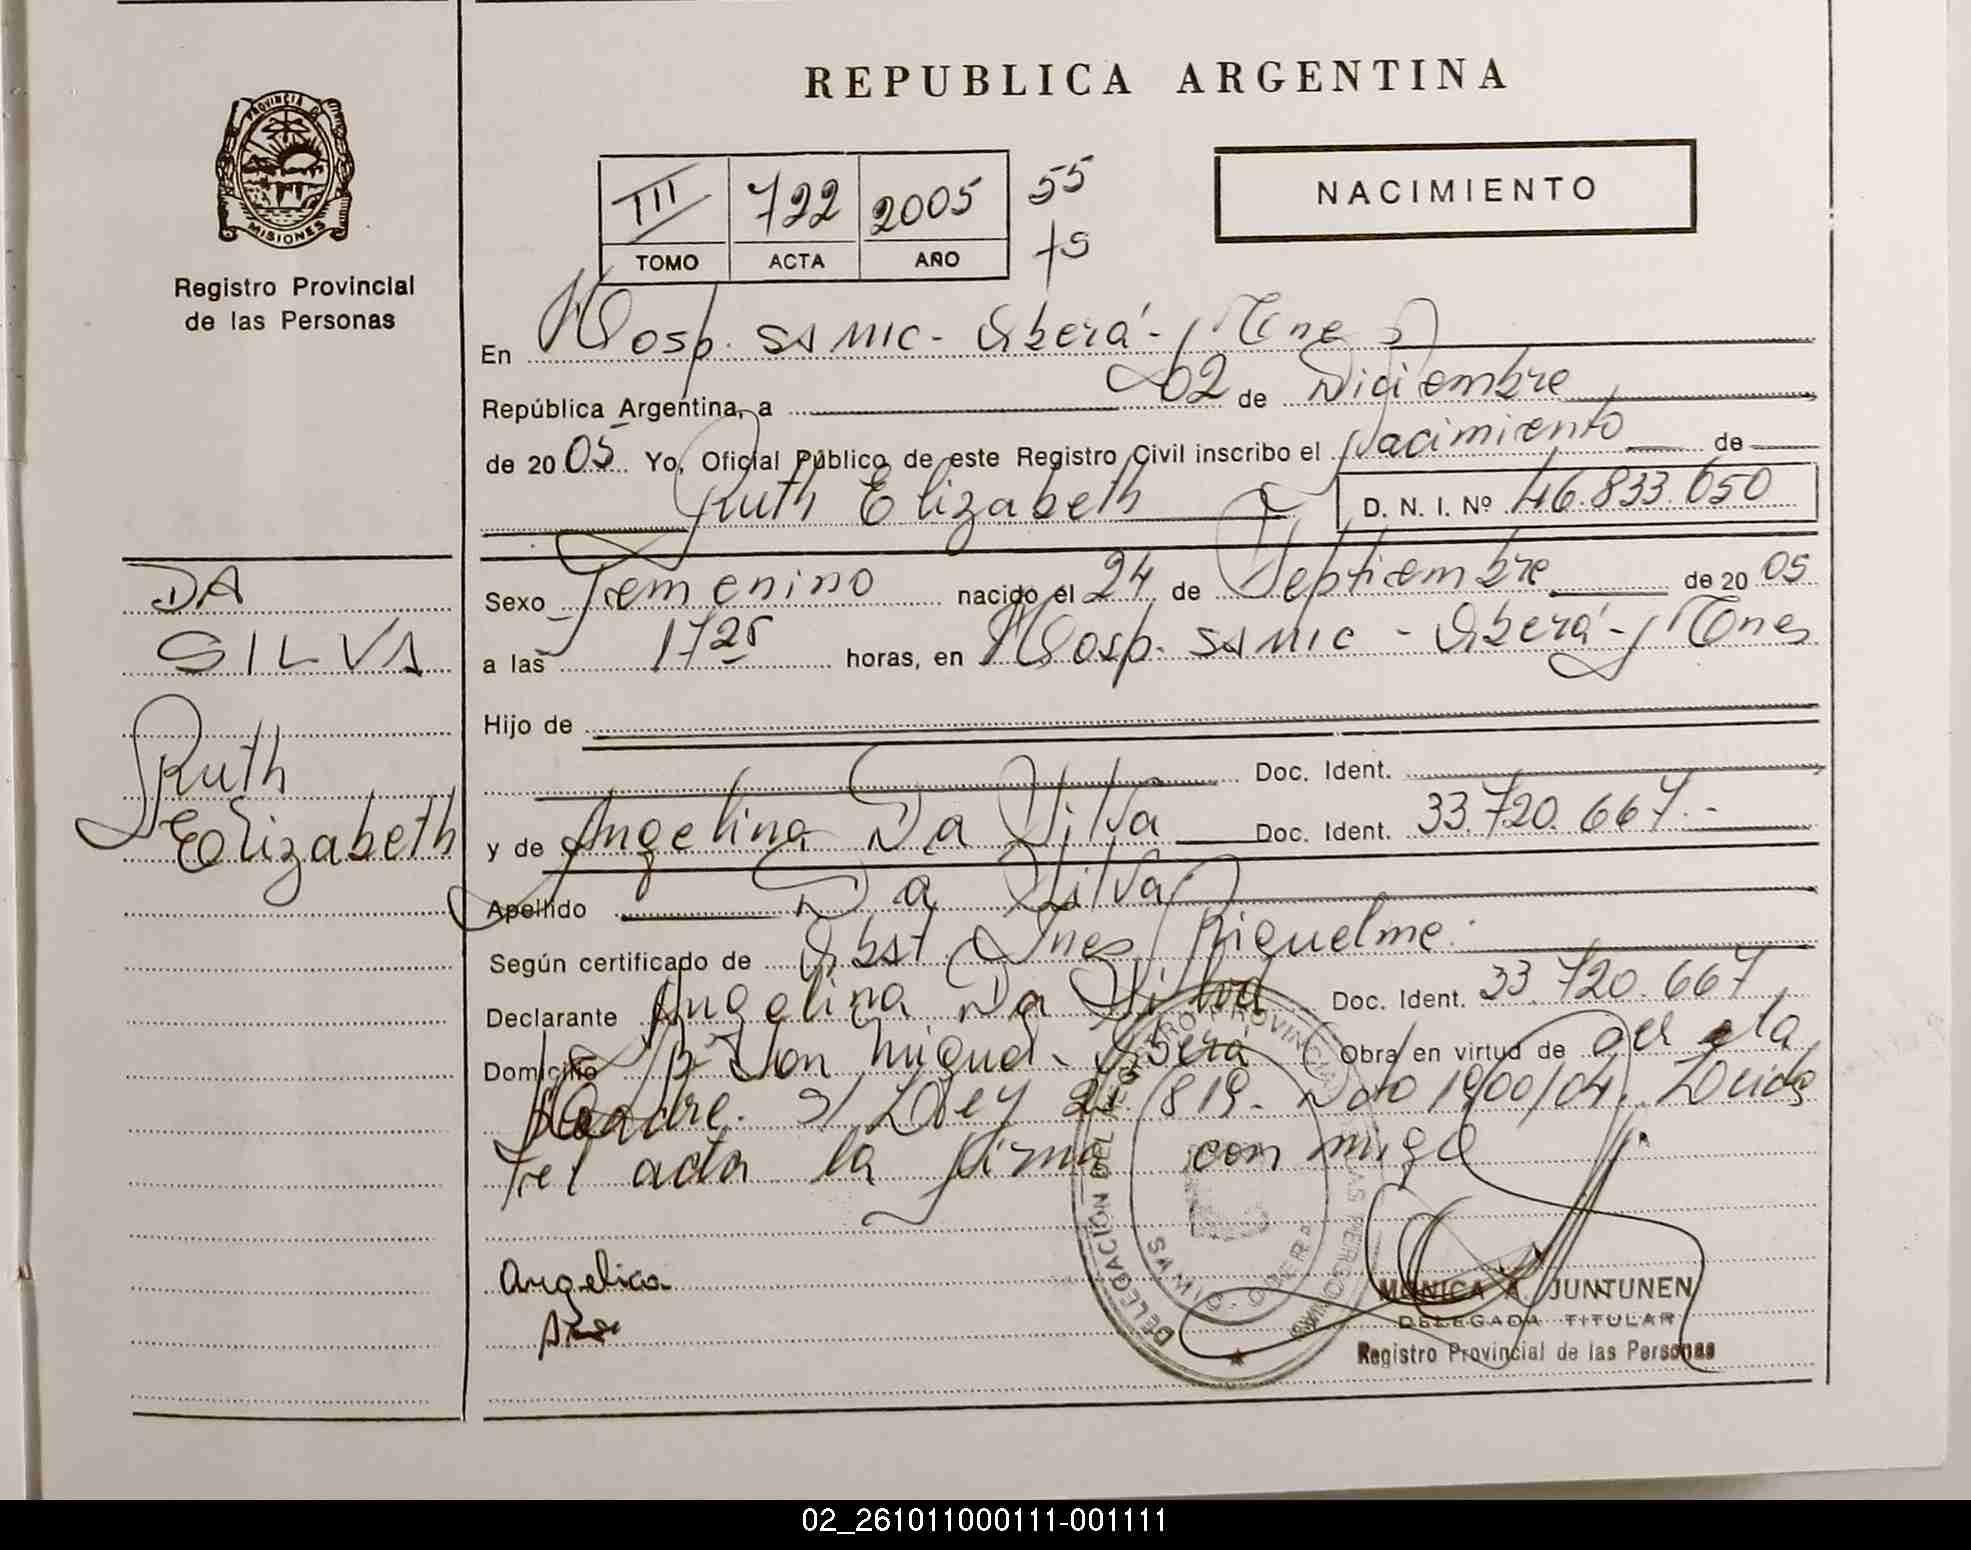 REPUBLICA ARGENTINA
PROVINCIA DE
MISIONES
Registro Provincial
de las Personas
III 722 2005 55
TOMO ACTA AÑO
NACIMIENTO
En Hosp. SAMIC - Oberá - Mnes
República Argentina, a 02 de Diciembre
de 2005 Yo, Oficial Público de este Registro Civil inscribo el Nacimiento de
Ruth Elizabeth D. N. I. Nº 46.833.050
DA
SILVA
Ruth
Elizabeth
Sexo Femenino nacido el 24 de Septiembre de 2005
a las 1725 horas, en Hosp. SAMIC - Oberá - Mnes
Hijo de
Doc. Ident.
y de Angelina Da Silva Doc. Ident. 33.720.667.-
Apellido Da Silva
Según certificado de Obst. Ines Riquelme.
Declarante Angelina Da Silva Doc. Ident. 33.720.667
Domicilio Don Miguel - Oberá Obra en virtud de ser la
Madre. s/ Ley Dto 1900/04. Leida
el acta la firma conmigo
DELEGACION DEL REGISTRO PROVINCIAL DE LAS PERSONAS
MONICA A. JUNTUNEN
DELEGADA TITULAR
Registro Provincial de las Personas
02_261011000111-001111